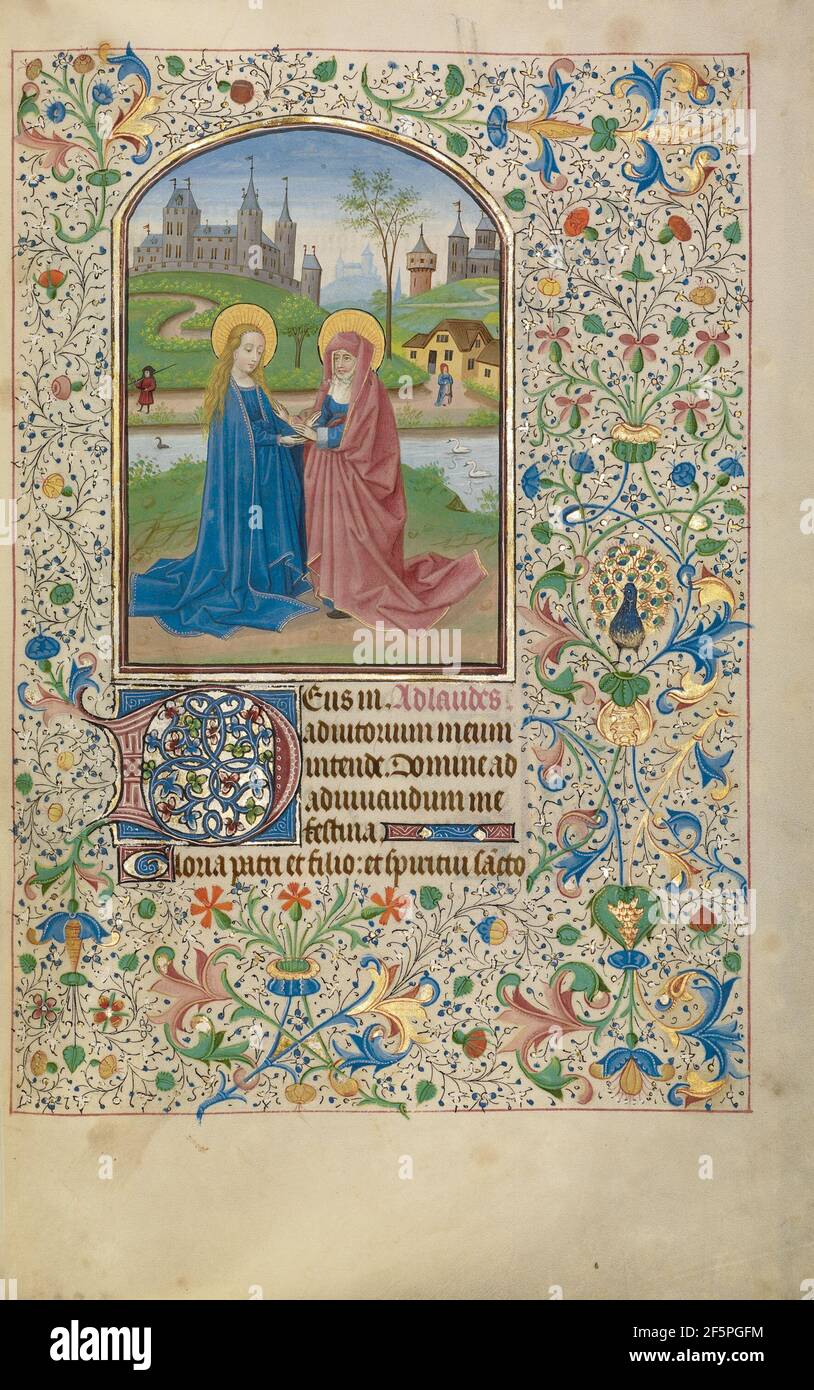 Deus in. Ad laudes.
adiutorium meum
intende. Domine ad
adiuuandum me
festina
Gloria patri et filio: et spiritui sancto
alamy
Image ID: 2F5PGFM
www.alamy.com